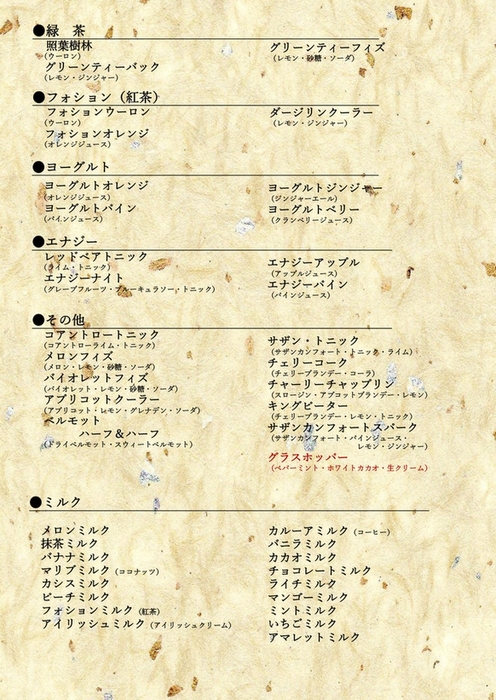 ●緑　茶
照葉樹林
(ウーロン)
グリーンティーバック
(レモン・ジンジャー)
グリーンティーフィズ
(レモン・砂糖・ソーダ)
●フォション（紅茶）
フォションウーロン
(ウーロン)
フォションオレンジ
(オレンジジュース)
ダージリンクーラー
(レモン・ジンジャー)
●ヨーグルト
ヨーグルトオレンジ
(オレンジジュース)
ヨーグルトパイン
(パインジュース)
ヨーグルトジンジャー
(ジンジャーエール)
ヨーグルトベリー
(クランベリージュース)
●エナジー
レッドベアトニック
(ライム・トニック)
エナジーナイト
(グレープフルーツ・ブルーキュラソー・トニック)
エナジーアップル
(アップルジュース)
エナジーパイン
(パインジュース)
●その他
コアントロートニック
(コアントローライム・トニック)
メロンフィズ
(メロン・レモン・砂糖・ソーダ)
バイオレットフィズ
(バイオレット・レモン・砂糖・ソーダ)
アプリコットクーラー
(アプリコット・レモン・グレナデン・ソーダ)
ベルモット
ハーフ＆ハーフ
(ドライベルモット・スウィートベルモット)
サザン・トニック
(サザンカンフォート・トニック・ライム)
チェリーコーク
(チェリーブランデー・コーラ)
チャーリーチャップリン
(スロージン・アプコットブランデー・レモン)
キングピーター
(チェリーブランデー・レモン・トニック)
サザンカンフォートスパーク
(サザンカンフォート・パインジュース・
レモン・ジンジャー)
グラスホッパー
(ペパーミント・ホワイトカカオ・生クリーム)
●ミルク
メロンミルク
抹茶ミルク
バナナミルク
マリブミルク (ココナッツ)
カシスミルク
ピーチミルク
フォションミルク (紅茶)
アイリッシュミルク (アイリッシュクリーム)
カルーアミルク (コーヒー)
バニラミルク
カカオミルク
チョコレートミルク
ライチミルク
マンゴーミルク
ミントミルク
いちごミルク
アマレットミルク